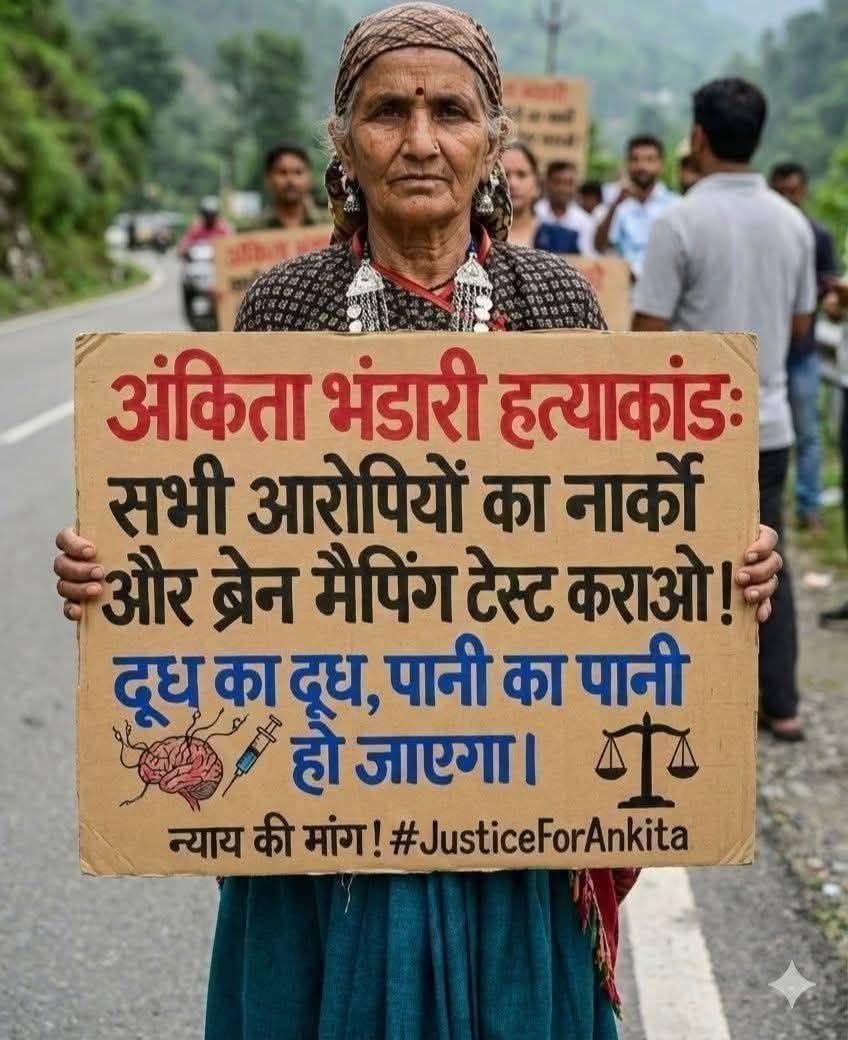 अंकिता भंडारी हत्याकांडः
सभी आरोपियों का नार्को
और ब्रेन मैपिंग टेस्ट कराओ!
दूध का दूध, पानी का पानी
हो जाएगा।
न्याय की मांग! #JusticeForAnkita
अंकिता